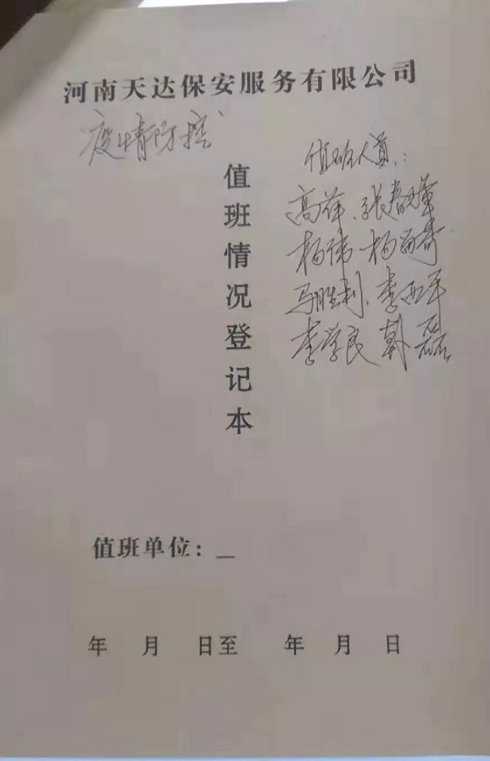 河南天达保安服务有限公司
疫情防控
值班情况登记本
值班人员:
高萍、张春
杨伟 杨
马胜利、李西军
李学良 韩磊
值班单位:
年 月 日至 年 月 日